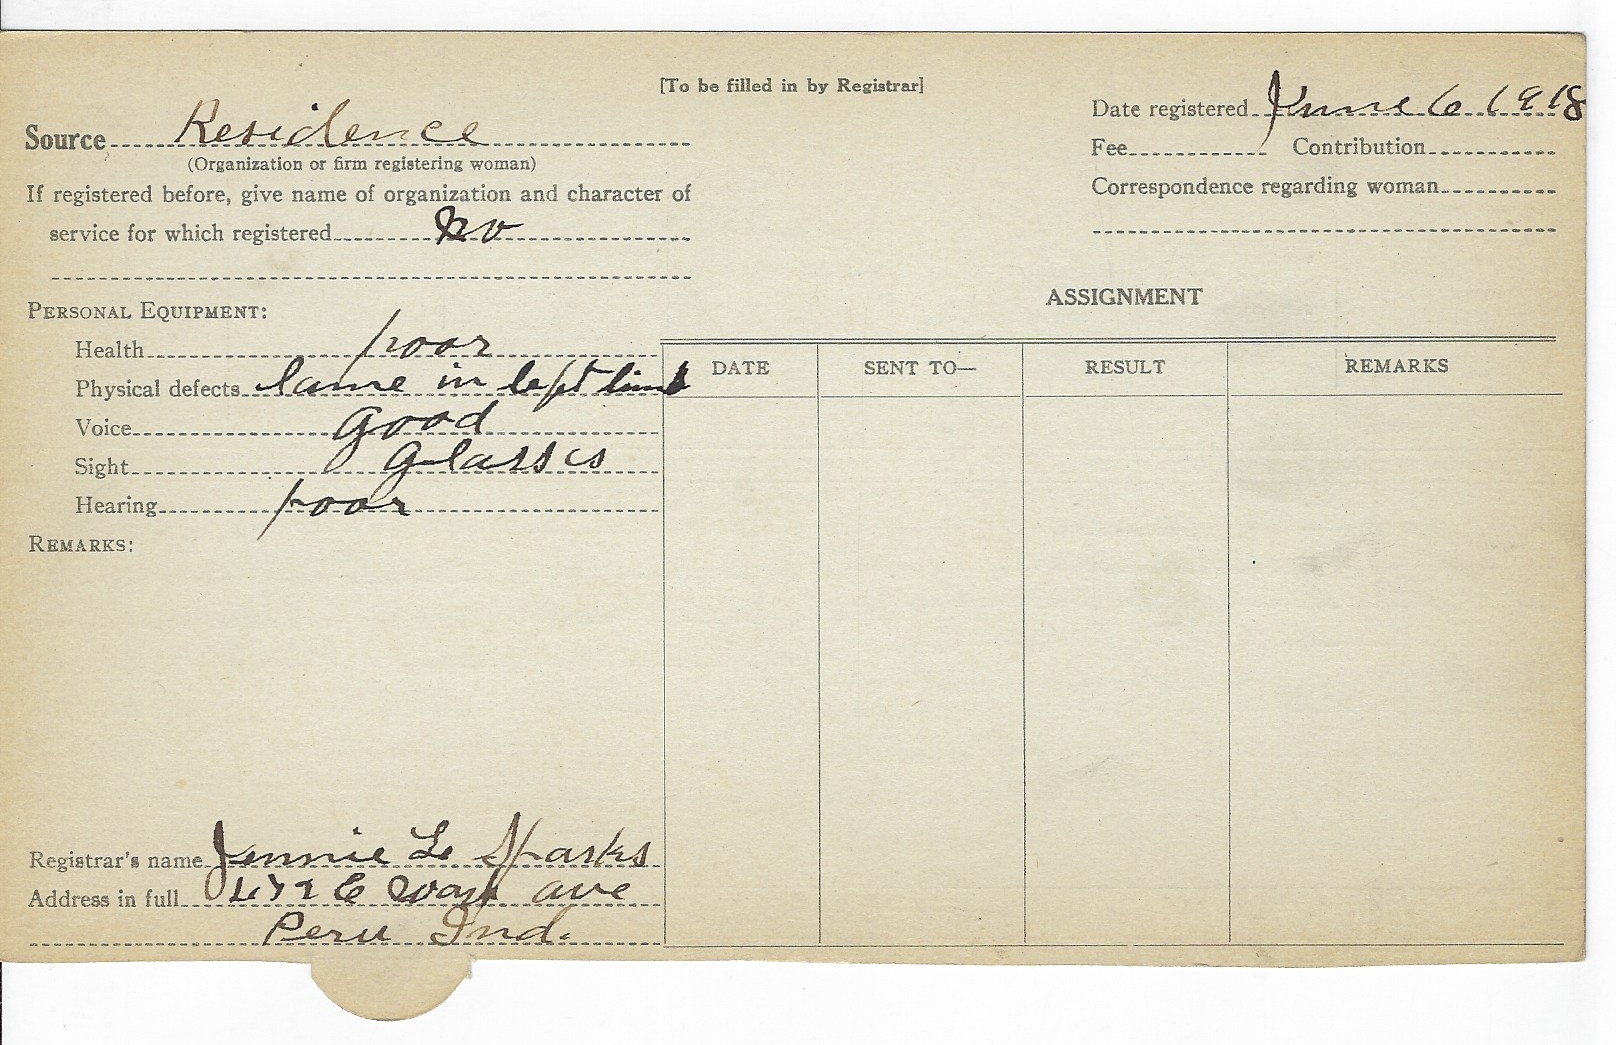 [To be filled in by Registrar]
Source Residence
(Organization or firm registering woman)
If registered before, give name of organization and character of
service for which registered No
Date registered June 6 1918
Fee Contribution
Correspondence regarding woman
PERSONAL EQUIPMENT:
Health poor
Physical defects lame in left limb
Voice good
Sight Glasses
Hearing poor
REMARKS:
ASSIGNMENT
DATE SENT TO— RESULT REMARKS
Registrar's name Jennie L Sparks
Address in full E ave
Peru Ind.